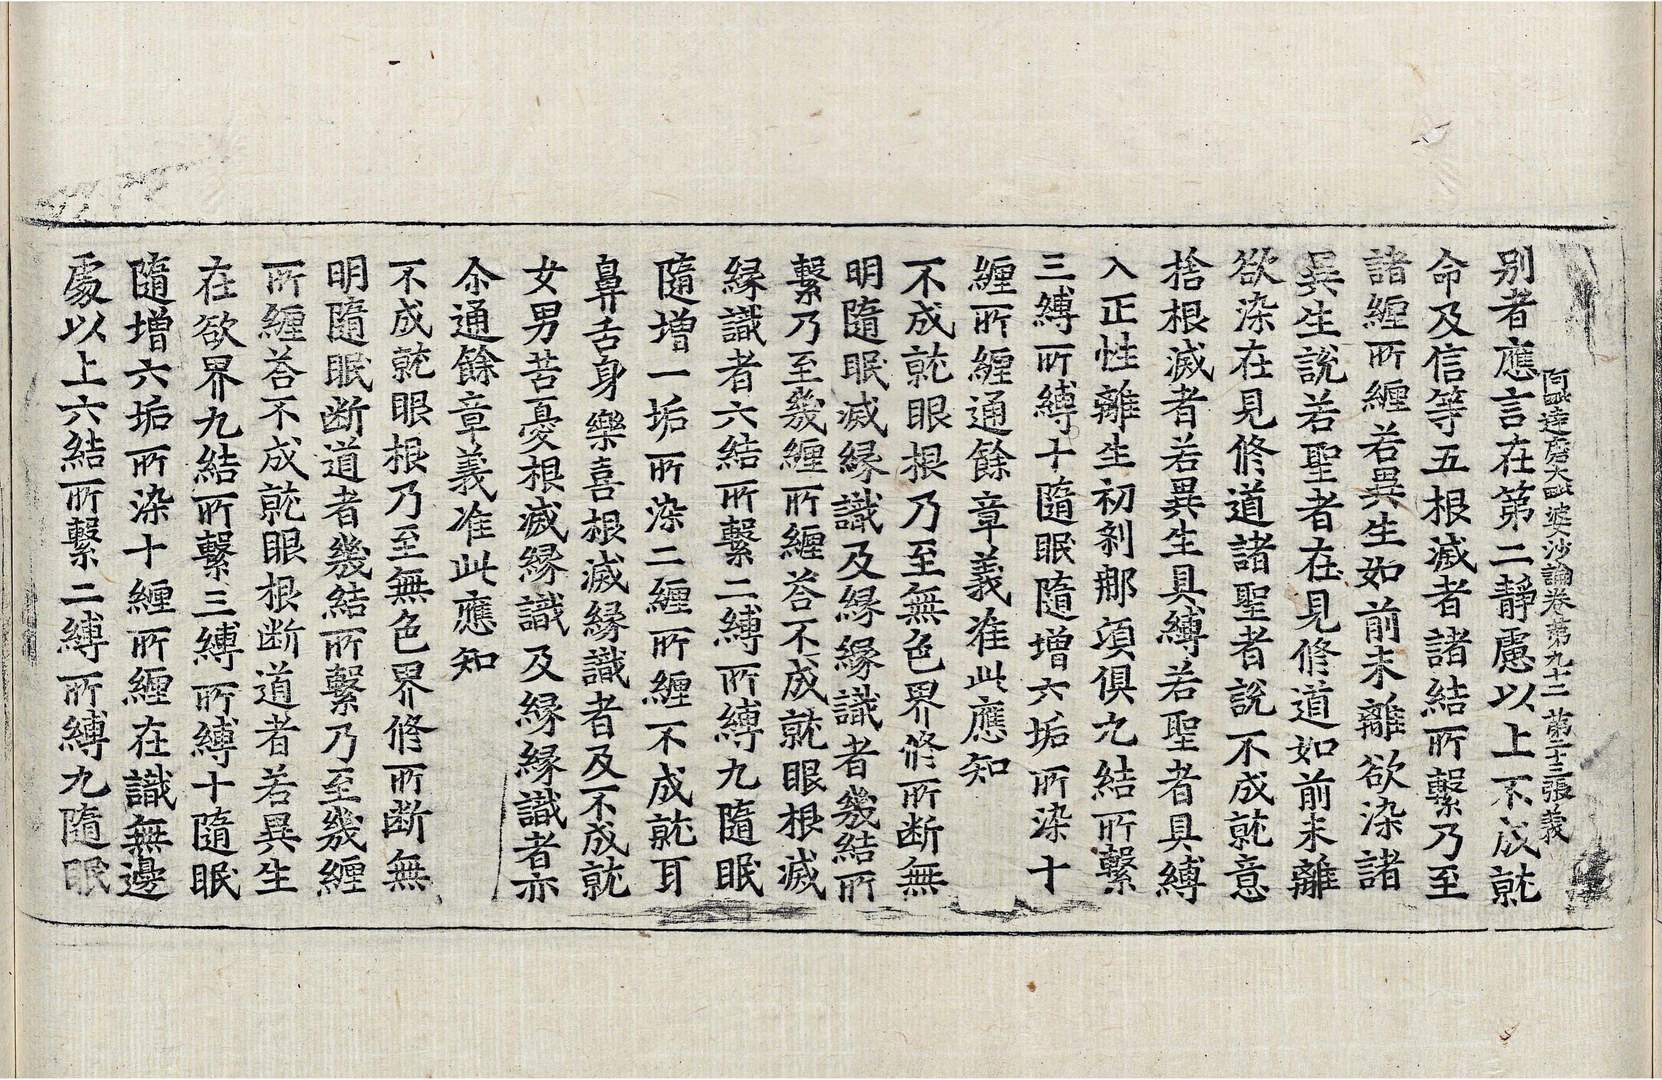 阿毗達磨大毗婆沙論卷第九十二 第二十三張 義
別者應言在第二靜慮以上不成就
命及信等五根滅者諸結所繫乃至
諸纏所纏若異生如前未離欲染諸
異生說若聖者在見修道如前未離
欲染在見修道諸聖者說不成就意
捨根滅者若異生具縛若聖者具縛
入正性離生初剎那頃俱九結所繫
三縛所縛十隨眠隨增六垢所染十
纏所纏通餘章義准此應知
不成就眼根乃至無色界修所断無
明隨眠滅緣識及緣緣識者幾結所
繫乃至幾纏所纏荅不成就眼根滅
緣識者六結所繫二縛所縛九隨眠
隨增一垢所染二纏所纏不成就耳
鼻舌身樂喜根滅緣識者及不成就
女男苦憂根滅緣識及緣緣識者亦
尒通餘章義准此應知
不成就眼根乃至無色界修所断無
明隨眠断道者幾結所繫乃至幾纏
所纏荅不成就眼根断道者若異生
在欲界九結所繫三縛所縛十隨眠
隨增六垢所染十纏所纏在識無邊
處以上六結所繫二縛所縛九隨眠